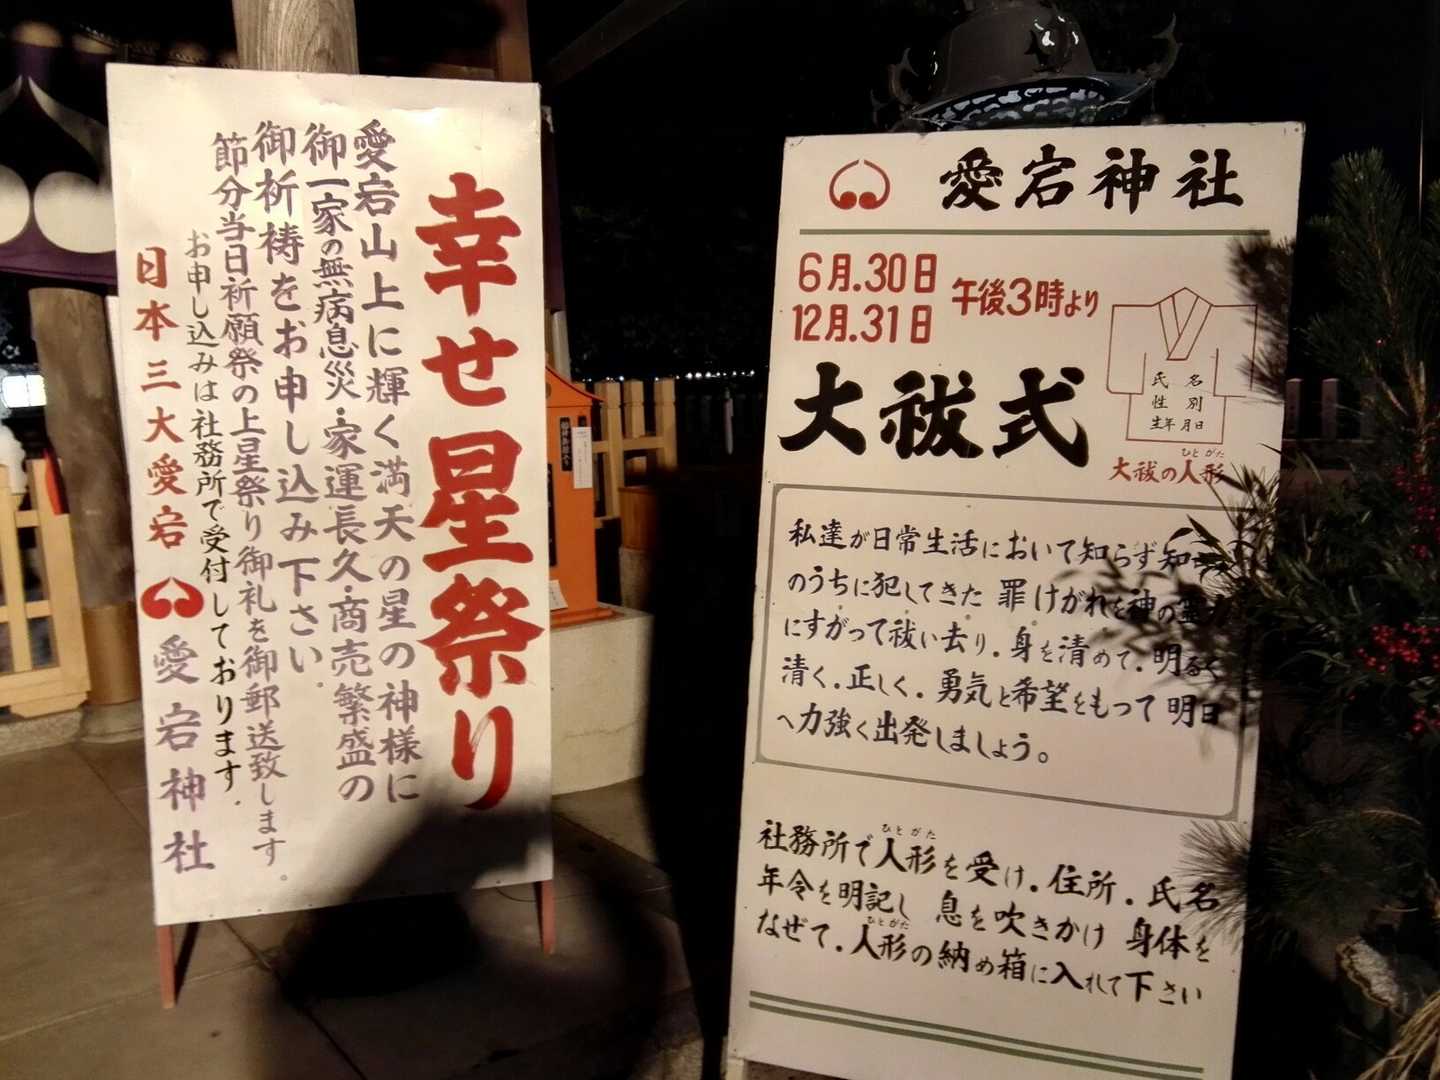 幸せ星祭り
愛宕山上に輝く満天の星の神様に
御一家の無病息災・家運長久・商売繁盛の
御祈祷をお申し込み下さい.
節分当日祈願祭の上星祭り御礼を御郵送致します。
お申し込みは社務所で受付しております.
日本三大愛宕
愛宕神社
愛宕神社
6月.30日
12月.31日
午後3時より
大祓式
氏名
性別
生年月日
ひとがた
大祓の人形
私達が日常生活において知らず知
のうちに犯してきた 罪けがれを神の霊
にすがって祓い去り.身を清めて.明るく
清く.正しく.勇気と希望をもって明日
へ力強く出発しましょう。
ひとがた
社務所で人形を受け.住所.氏名
年令を明記し 息を吹きかけ 身体を
ひとがた
なぜて.人形の納め箱に入れて下さい